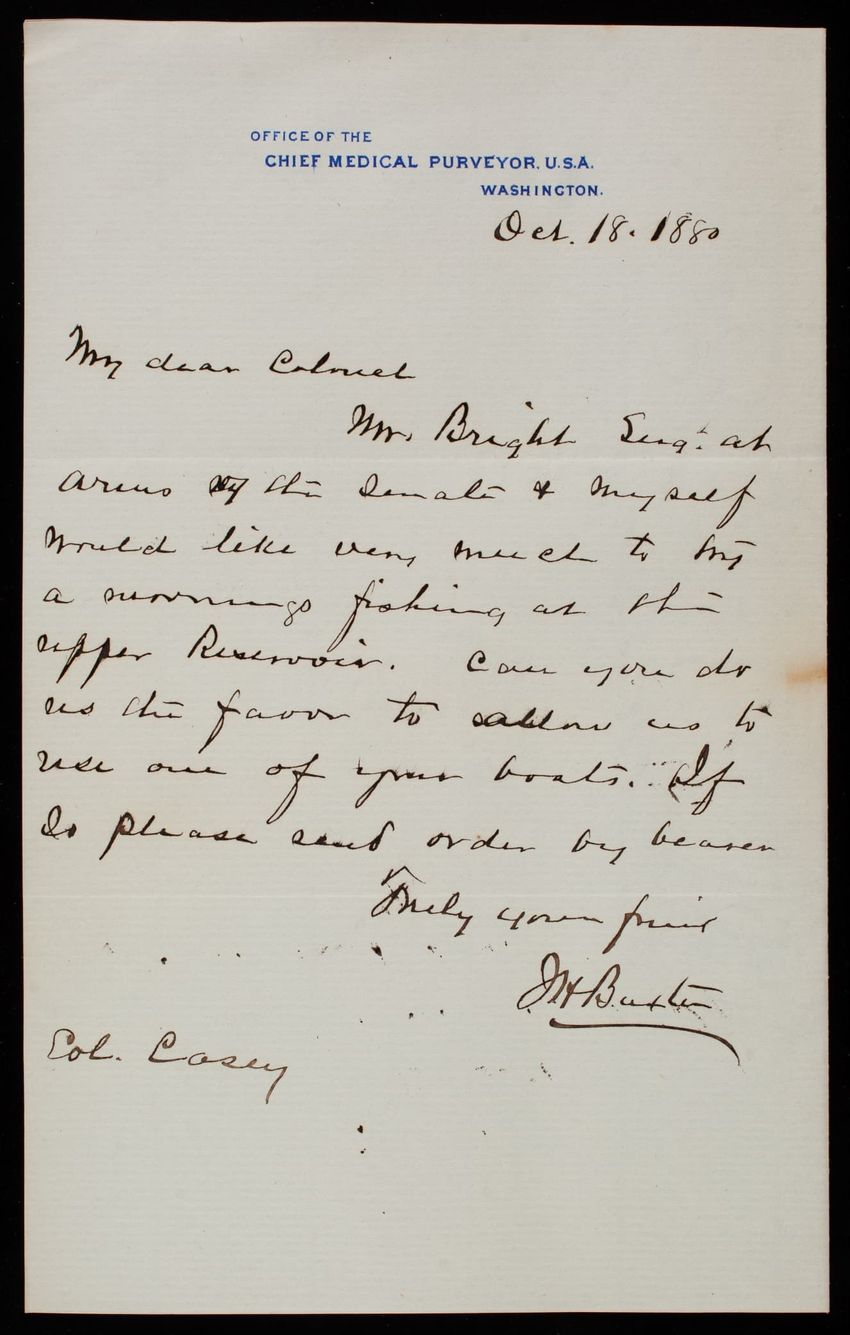 OFFICE OF THE
CHIEF MEDICAL PURVEYOR, U.S.A.
WASHINGTON.
Oct. 18. 1880
My dear Colonel
Mr. Bright Serg.t at
arms of the Senate & myself
would like very much to try
a mornings fishing at the
upper Reservoir. Can you do
us the favor to allow us to
use one of your boats. If
so please send order by bearer
Truly your friend
J H Baxter
Col. Casey